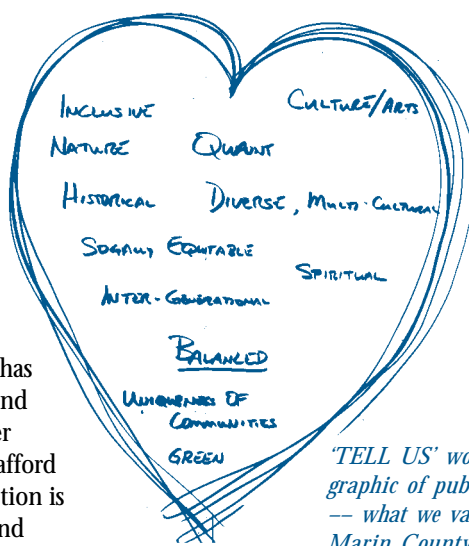 INCLUSIVE
CULTURE/ARTS
NATURE
QUAINT
HISTORICAL
DIVERSE, MULTI-CULTURAL
SOCIALLY EQUITABLE
SPIRITUAL
INTER-GENERATIONAL
BALANCED
UNIQUENESS OF
COMMUNITIES
GREEN
has
nd
er
afford
tion is
nd
'TELL US' wo
graphic of pub
-- what we va
Marin County